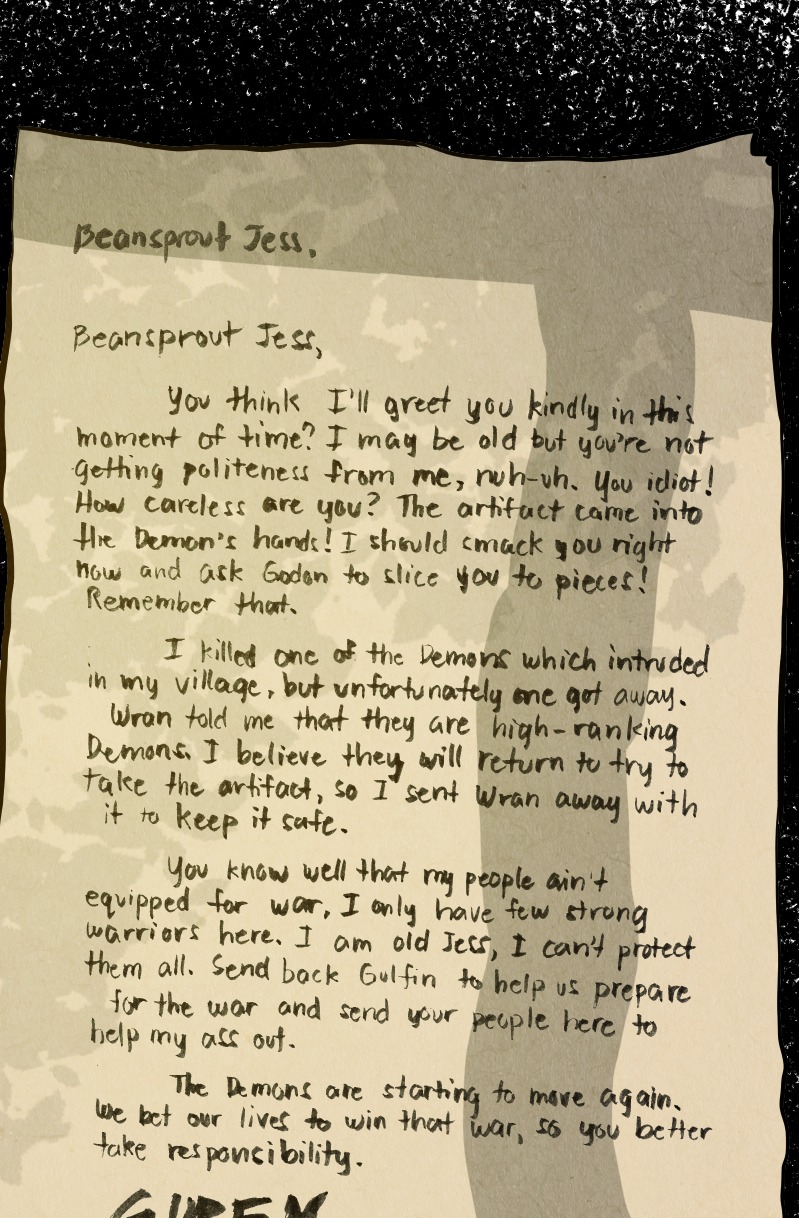 Beansprout Jess,
Beansprout Jess,
You think I'll greet you kindly in this
moment of time? I may be old but you're not
getting politeness from me, nuh-uh. You idiot!
How careless are you? The artifact came into
the Demon's hands! I should smack you right
now and ask Godon to slice you to pieces!
Remember that.
I killed one of the Demons which intruded
in my village, but unfortunately one got away.
Wran told me that they are high-ranking
Demons. I believe they will return to try to
take the artifact, so I sent Wran away with
it to keep it safe.
You know well that my people ain't
equipped for war, I only have few strong
warriors here. I am old Jess, I can't protect
them all. Send back Gulfin to help us prepare
for the war and send your people here to
help my ass out.
The Demons are starting to move again.
We bet our lives to win that war, so you better
take responcibility.